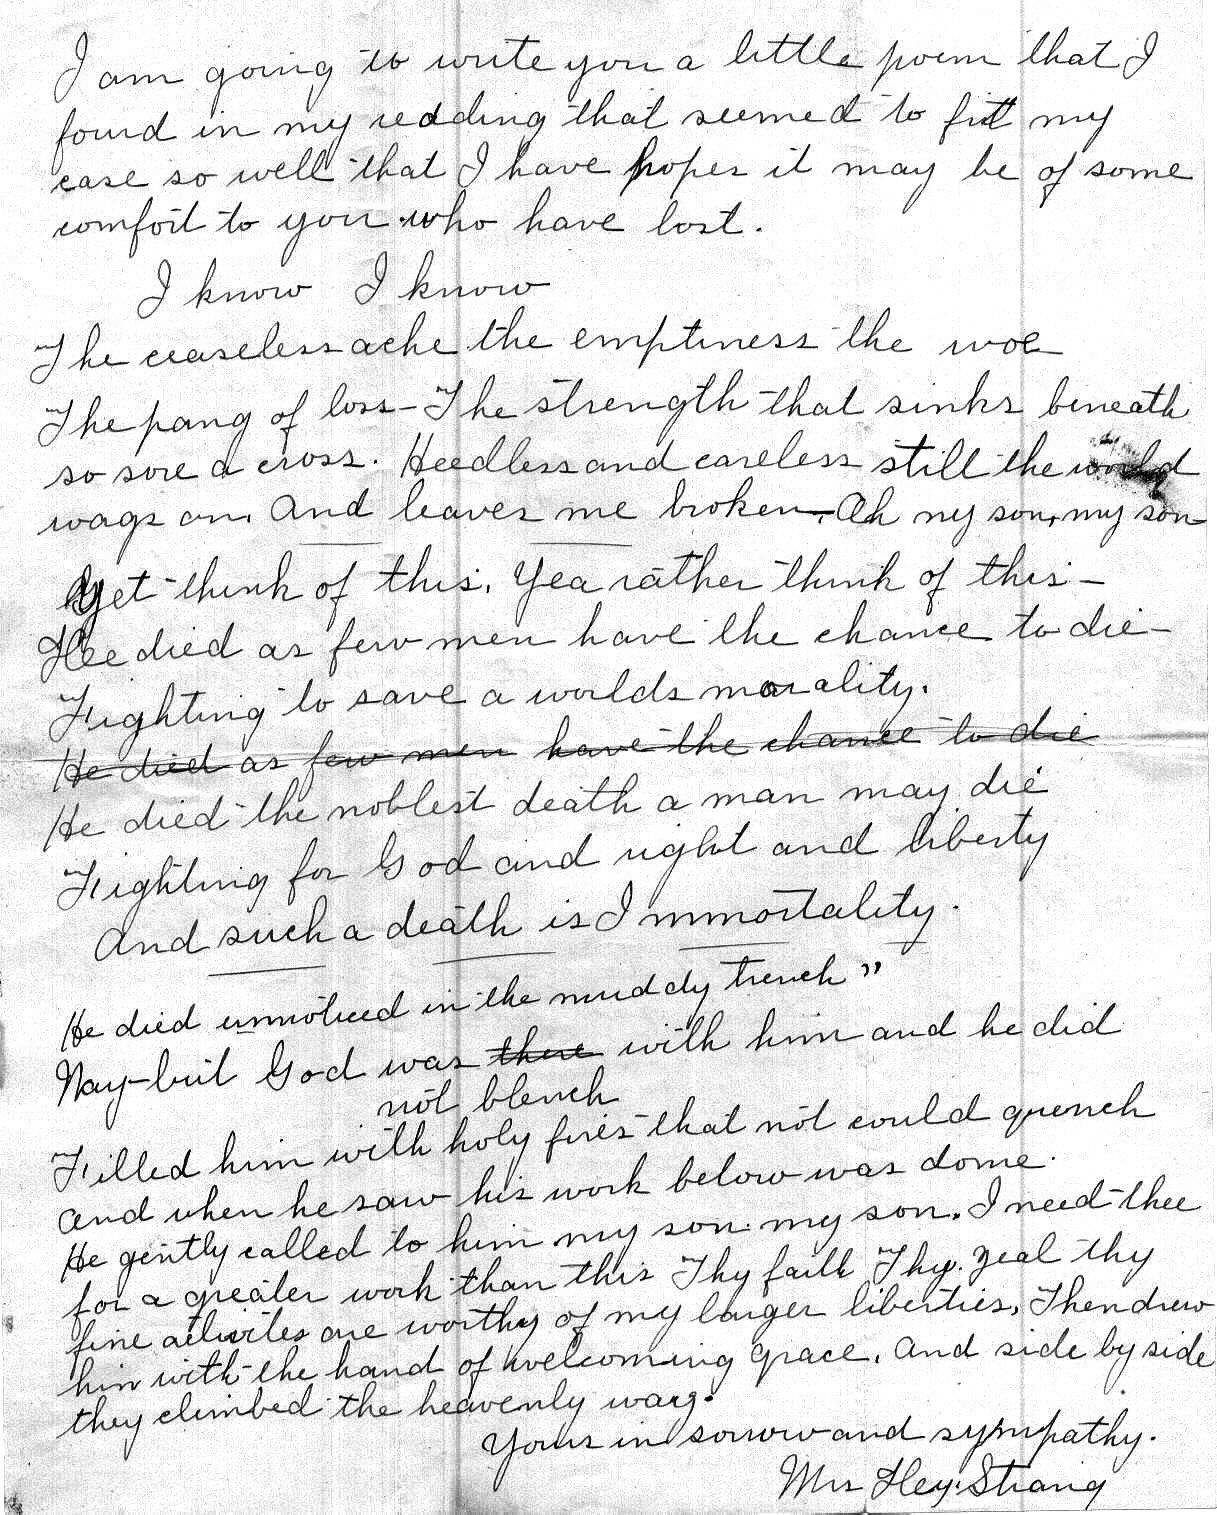 I am going to write you a little poem that I
found in my redding that seemed to fit my
case so well that I have hopes it may be of some
comfort to you who have lost.
I know I know
The ceaseless ache the emptiness the woe
The pang of loss - The strength that sinks beneath
so sore a cross. Heedless and careless still the world
wags on. And leaves me broken - Oh my son, my son -
Yet think of this. Yea rather think of this -
He died as few men have the chance to die -
Fighting to save a worlds morality.
He died as few men have the chance to die
He died the noblest death a man may die
Fighting for God and right and liberty
And such a death is Immortality.
He died unnoticed in the muddy trench"
Nay - but God was there with him and he did
not blench
Filled him with holy fires that not could quench
And when he saw his work below was done.
He gently called to him my son my son. I need thee
for a greater work than this Thy faith Thy zeal thy
fine are worthy of my larger liberties. Then drew
him with the hand of welcoming grace. And side by side
they climbed the heavenly way.
Yours in sorrow and sympathy.
Mrs Strang